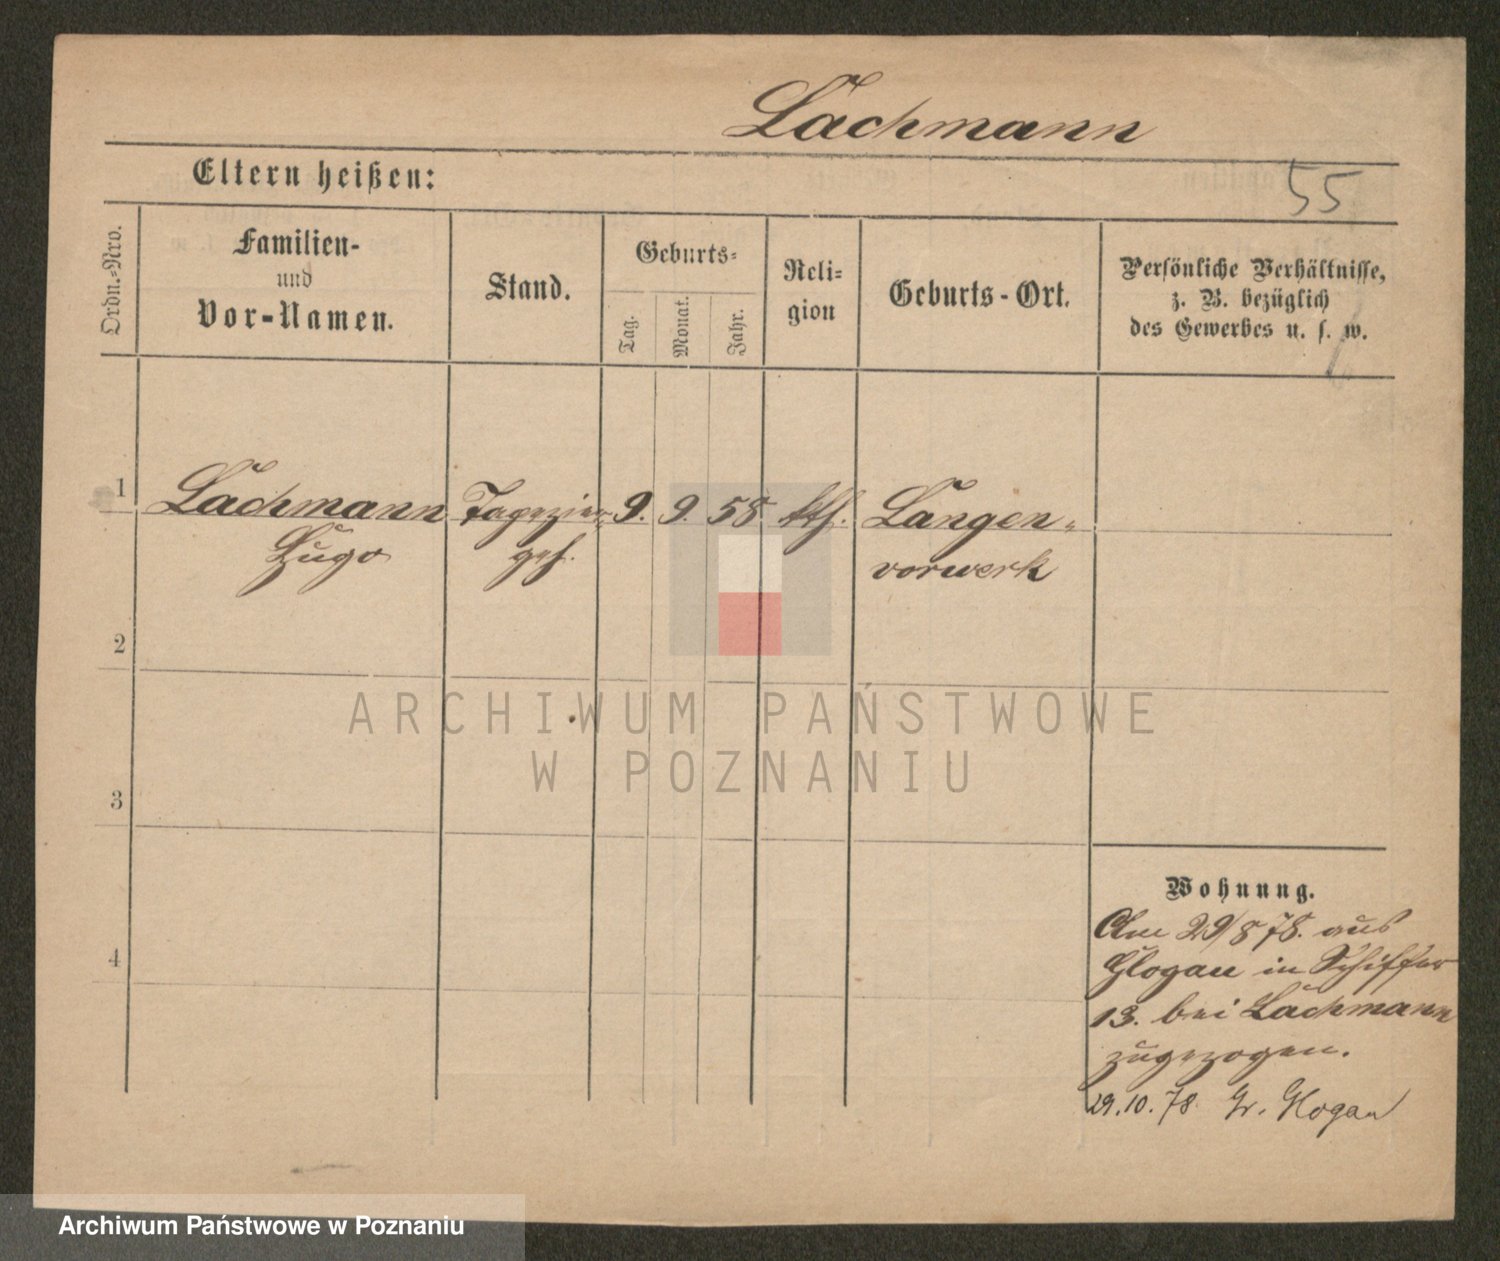 Lachmann
Eltern heißen:
55
Ordn.-Nro.
Familien-
und
Vor-Namen.
Stand.
Geburts-
Tag.
Monat.
Jahr.
Reli-
gion
Geburts-Ort.
Persönliche Verhältnisse,
z. B. bezüglich
des Gewerbes u. s. w.
1 Lachmann Tapezier- 9. 9. 58 kth. Langen-
Hugo geh. vorwerk
2
3
4
Wohnung.
Am 29/8 78. aus
Glogau in Schiffer
13. bei Lachmann
zugezogen.
29.10.78. Gr. Glogau
ARCHIWUM PAŃSTWOWE
W POZNANIU
Archiwum Państwowe w Poznaniu